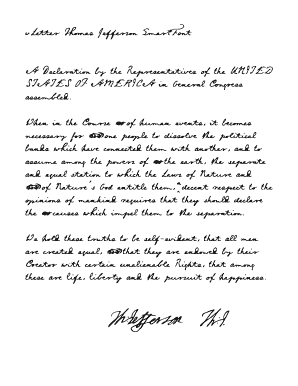 vLetter Thomas Jefferson SmartFont
A Declaration by the Representatives of the UNITED
STATES OF AMERICA in General Congress
assembled.
When in the Course of human events, it becomes
necessary for one people to dissolve the political
bands which have connected them with another, and to
assume among the powers of the earth, the separate
and equal station to which the Laws of Nature and
of Nature's God entitle them, decent respect to the
opinions of mankind requires that they should declare
the causes which impel them to the separation.
We hold these truths to be self-evident, that all men
are created equal, that they are endowed by their
Creator with certain unalienable Rights, that among
these are life, liberty and the pursuit of happiness.
Th Jefferson Th.J.